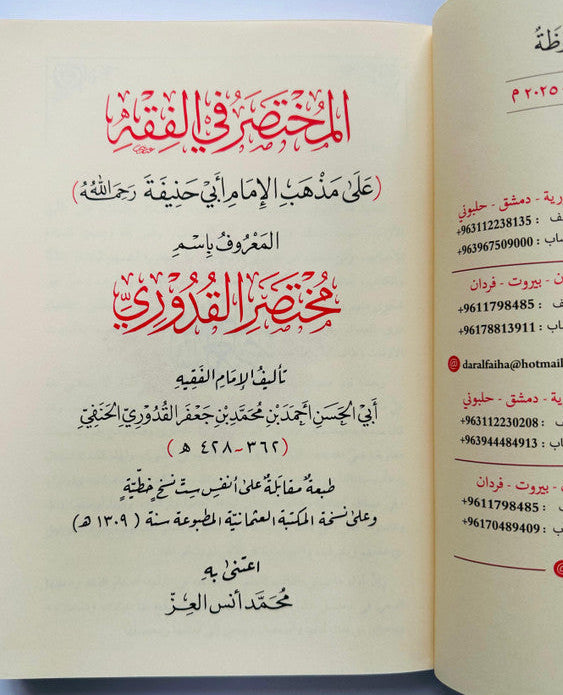 المُخْتَصَرُ في الفِقْهِ
(عَلَى مَذْهَبِ الإِمَامِ أَبِي حَنِيفَةَ رَحِمَهُ اللهُ)
المَعْرُوفُ بِاسْمِ
مُخْتَصَر القُدُورِيِّ
تأليفُ الإمَامِ الفَقِيهِ
أَبِي الحَسَنِ أَحمَدَ بْنِ مُحَمَّدِ بْنِ جَعْفَرَ القُدُورِيِّ الحَنَفِيِّ
(٣٦٢ - ٤٢٨ هـ)
طبعةٌ مقابَلةٌ على أنفسِ ستِّ نسخٍ خطّيّةٍ
وعلى نسخة المكتبة العثمانيّة المطبوعة سنة (١٣٠٩ هـ)
اعتنى به
مُحَمَّد أنس العِزّ
٢٠٢٥ م
دمشق - حلبوني
+963112238135 :
+963967509000 :
بيروت - فردان
+9611798485 :
+96178813911 :
@ daralfaiha@hotmail
دمشق - حلبوني
+963112230208 :
+963944484913 :
بيروت - فردان
+9611798485 :
+96170489409 :